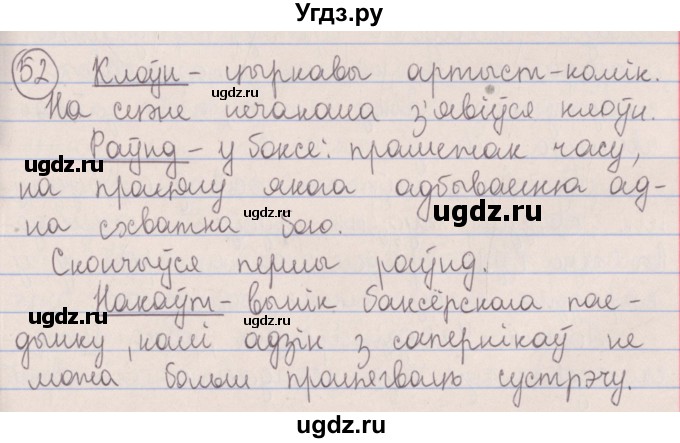 Угдз.ру
52 Клоўн - цыркавы артыст-комік.
На сцэне нечакана з'явіўся клоўн.
Раўнд - у боксе: прамежак часу,
на працягу якога адбываецца ад-
на схватка бою.
Скончыўся першы раўнд.
Накаўт - вынік баксёрскага пае-
дынку, калі адзін з сапернікаў не
можа больш працягваць сустрэчу.
ugdz.ru
ugdz.ru
ugdz.ru
ugdz.ru
ugdz.ru
ugdz.ru
ugdz.ru
ugdz.ru
ugdz.ru
ugdz.ru
ugdz.ru